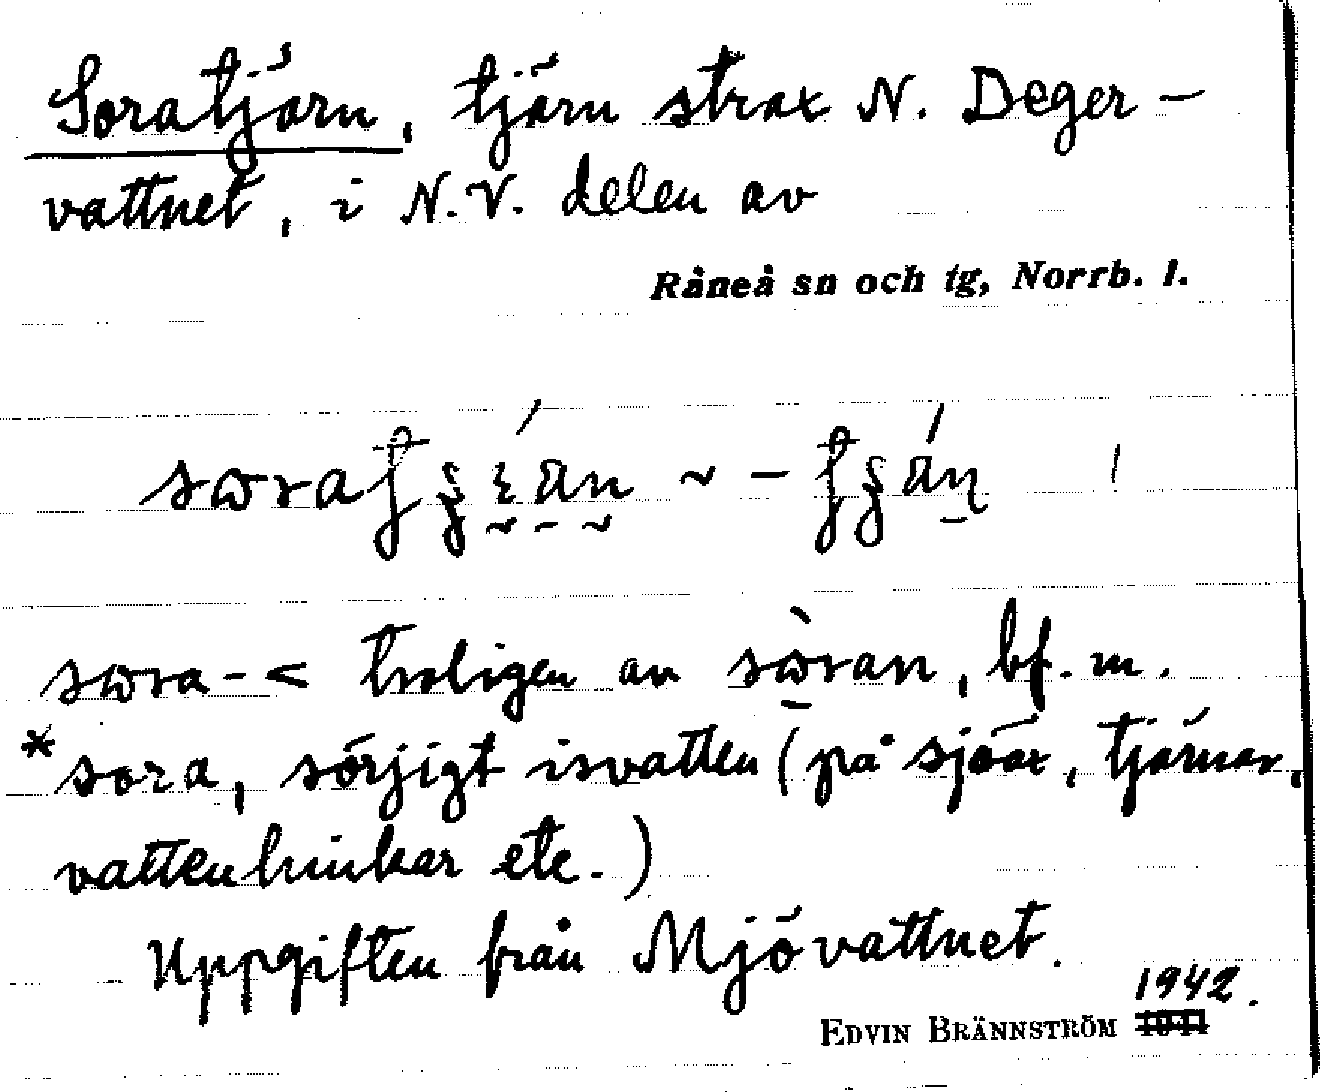 Soratjärn, tjärn strax N. Deger-
vattnet, i N.V. delen av
Råneå sn och tg, Norrb. l.
sora- < troligen av sòran, bf. m.
*sora, sörjigt isvatten (på sjöar, tjärnar,
vattenhinkar etc.)
Uppgiften från Mjövattnet.
1942.
EDVIN BRÄNNSTRÖM 1941